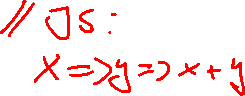 // JS:
x=>y=>x+y